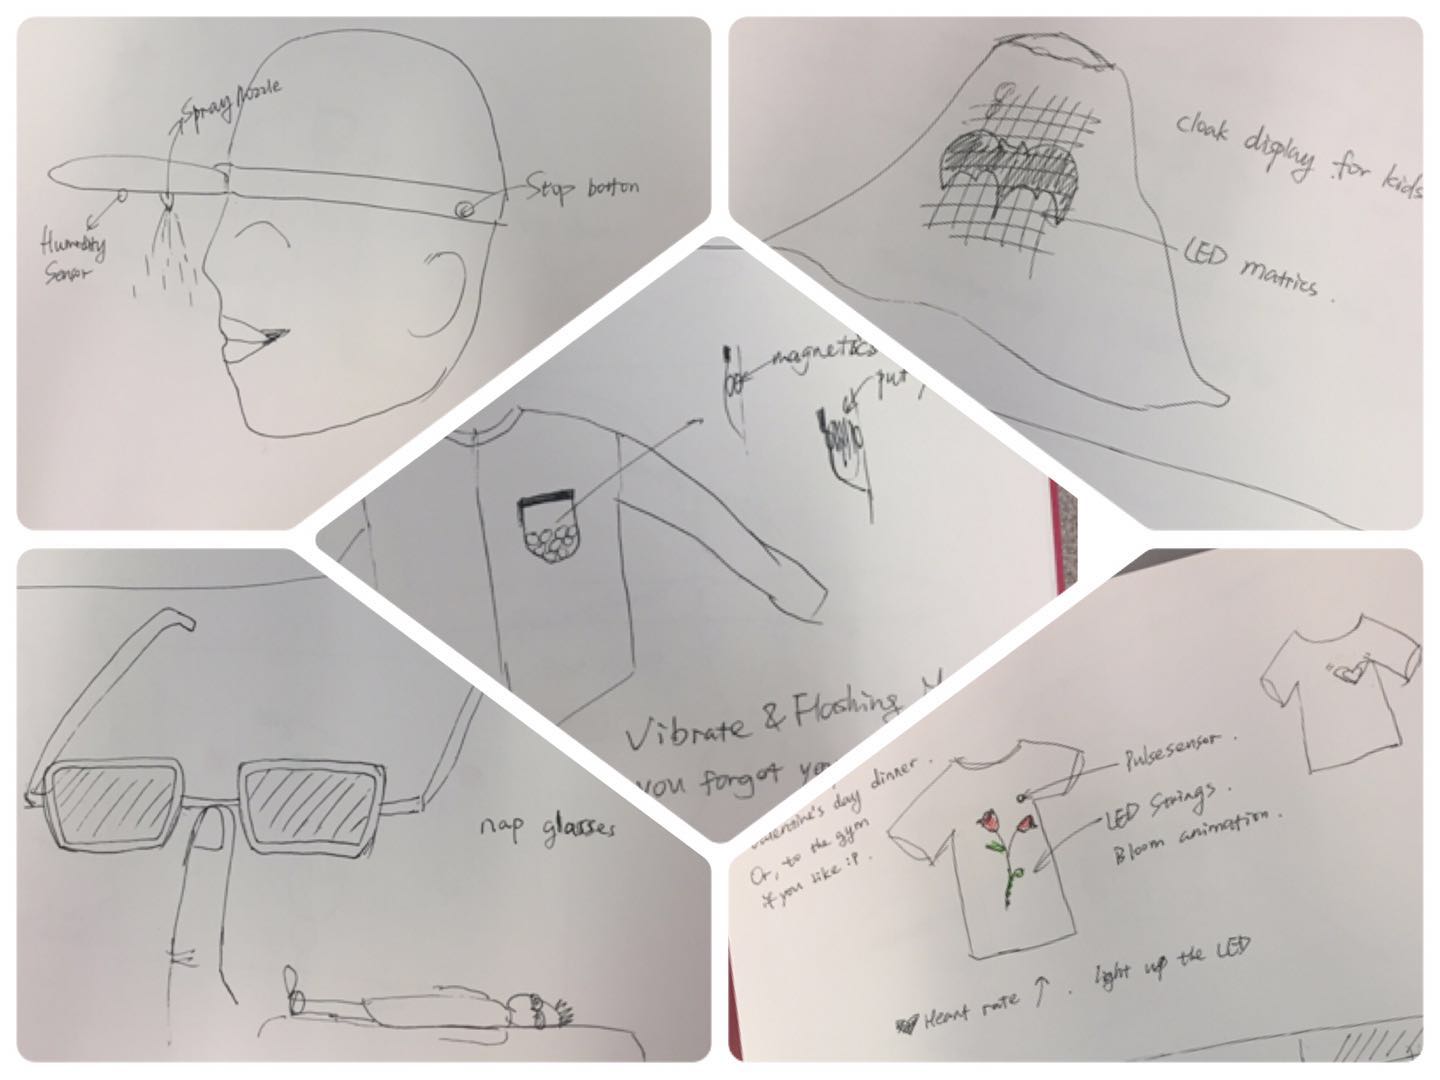 Spray Nozzle
Stop botton
Humidity
Sensor
cloak display for kids
LED matrics.
magnetics
put
Vibrate & Flashing
you forgot
nap glasses
day dinner.
Or, to the gym
if you like :P.
Pulsesensor.
LED Strings.
Bloom animation.
Heart rate ↑. light up the LED